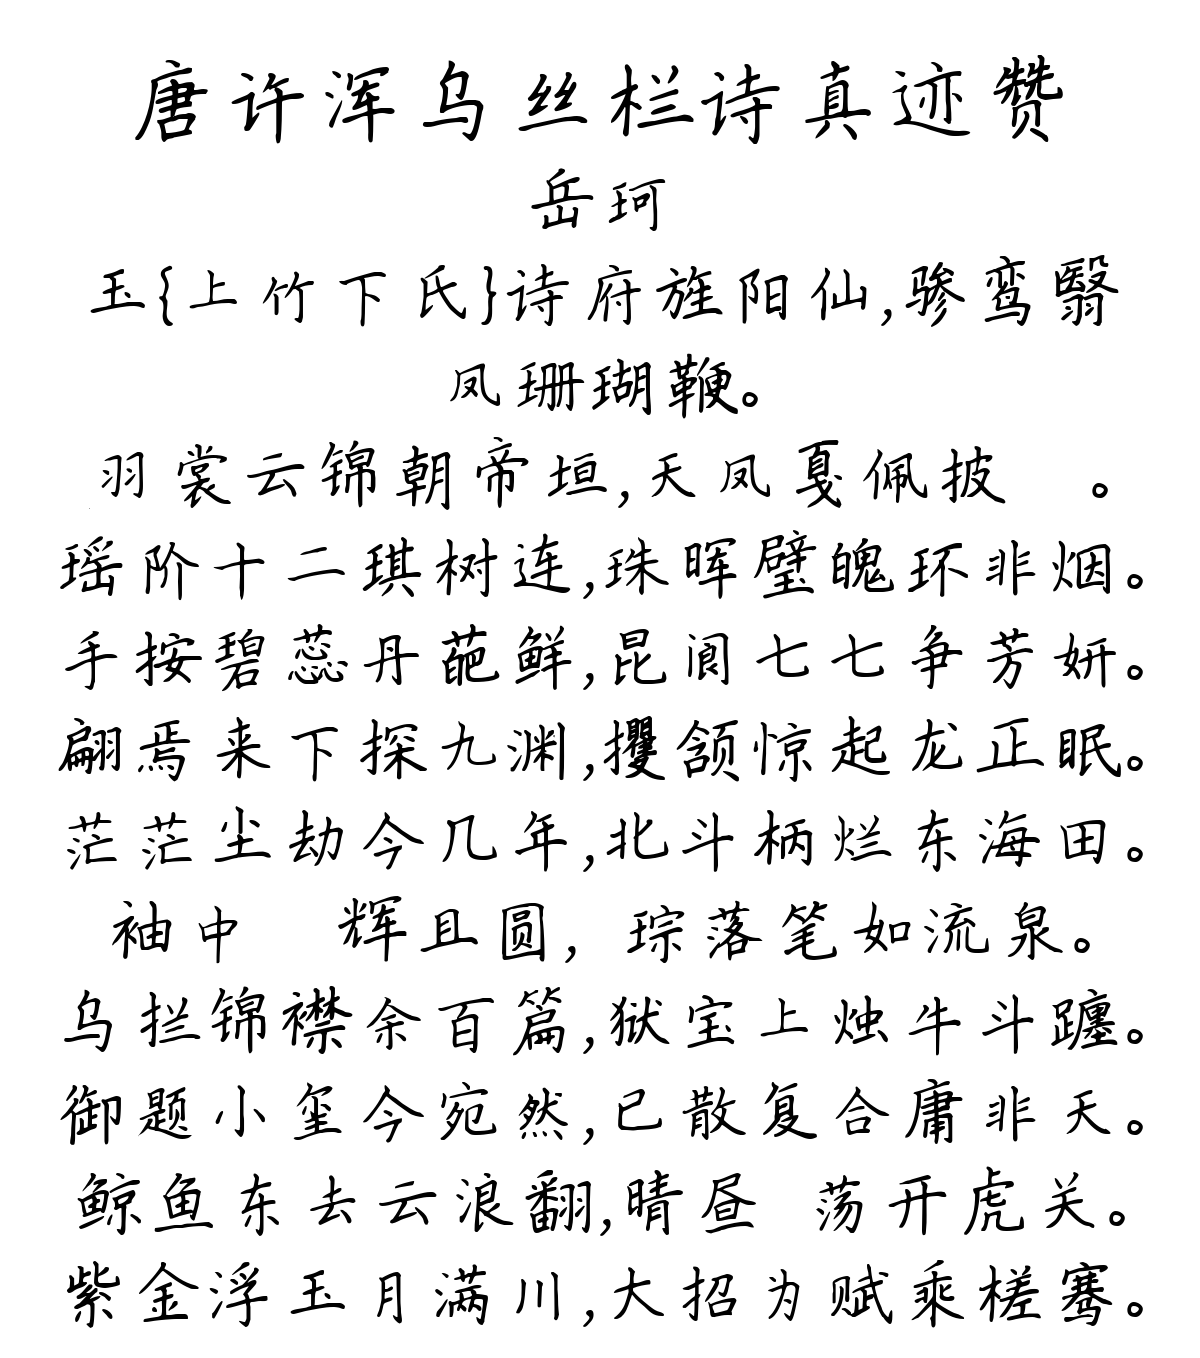 唐许浑乌丝栏诗真迹赞
岳珂
玉{上竹下氏}诗府旌阳仙,骖鸾翳
凤珊瑚鞭。
羽裳云锦朝帝垣,天凤戛佩披 。
瑶阶十二琪树连,珠晖璧魄环非烟。
手按碧蕊丹葩鲜,昆阆七七争芳妍。
翩焉来下探九渊,攫颔惊起龙正眠。
茫茫尘劫今几年,北斗柄烂东海田。
袖中 辉且圆，琮落笔如流泉。
乌拦锦襟余百篇,狱宝上烛牛斗躔。
御题小玺今宛然,已散复合庸非天。
鲸鱼东去云浪翻,晴昼 荡开虎关。
紫金浮玉月满川,大招为赋乘槎骞。